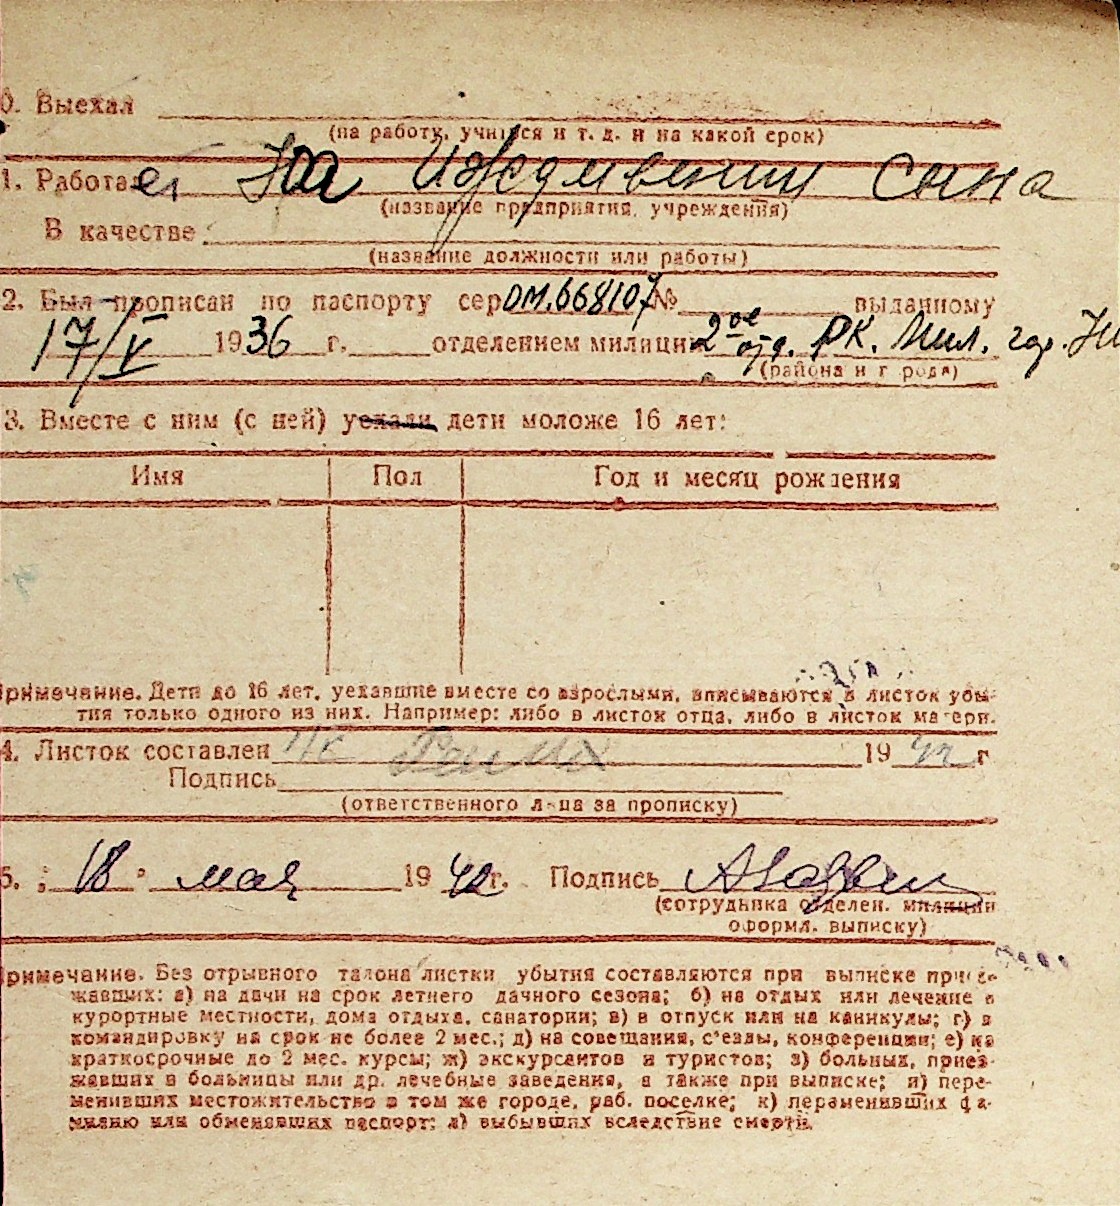 0. Выехал
(на работу, учиться и т. д. и на какой срок)
1. Работает На иждивении сына
(название предприятия, учреждения)
В качестве
(название должности или работы)
2. Был прописан по паспорту сер ОМ.668107 № выданному
17/V 1936 г. отделением милиции 2ое отд. РК. Мил. гор.
(района и города)
3. Вместе с ним (с ней) уехали дети моложе 16 лет:
Имя Пол Год и месяц рождения
Примечание. Дети до 16 лет, уехавшие вместе со взрослыми, вписываются в листок убы-
тия только одного из них. Например: либо в листок отца, либо в листок матери.
4. Листок составлен 1942 г
Подпись
(ответственного лица за прописку)
5. 18 мая 1942 г. Подпись
(сотрудника отделен. милиции
оформл. выписку)
Примечание. Без отрывного талона листки убытия составляются при выписке приез-
жавших: а) на дачи на срок летнего дачного сезона; б) на отдых или лечение в
курортные местности, дома отдыха, санатории; в) в отпуск или на каникулы; г) в
командировку на срок не более 2 мес.; д) на совещания, с'езды, конференции; е) на
краткосрочные до 2 мес. курсы; ж) экскурсантов и туристов; з) больных, приез-
жавших в больницы или др. лечебные заведения, а также при выписке; и) пере-
менивших местожительство в том же городе, раб. поселке; к) переменивших фа-
милию или обменявших паспорт; л) выбывших вследствие смерти.